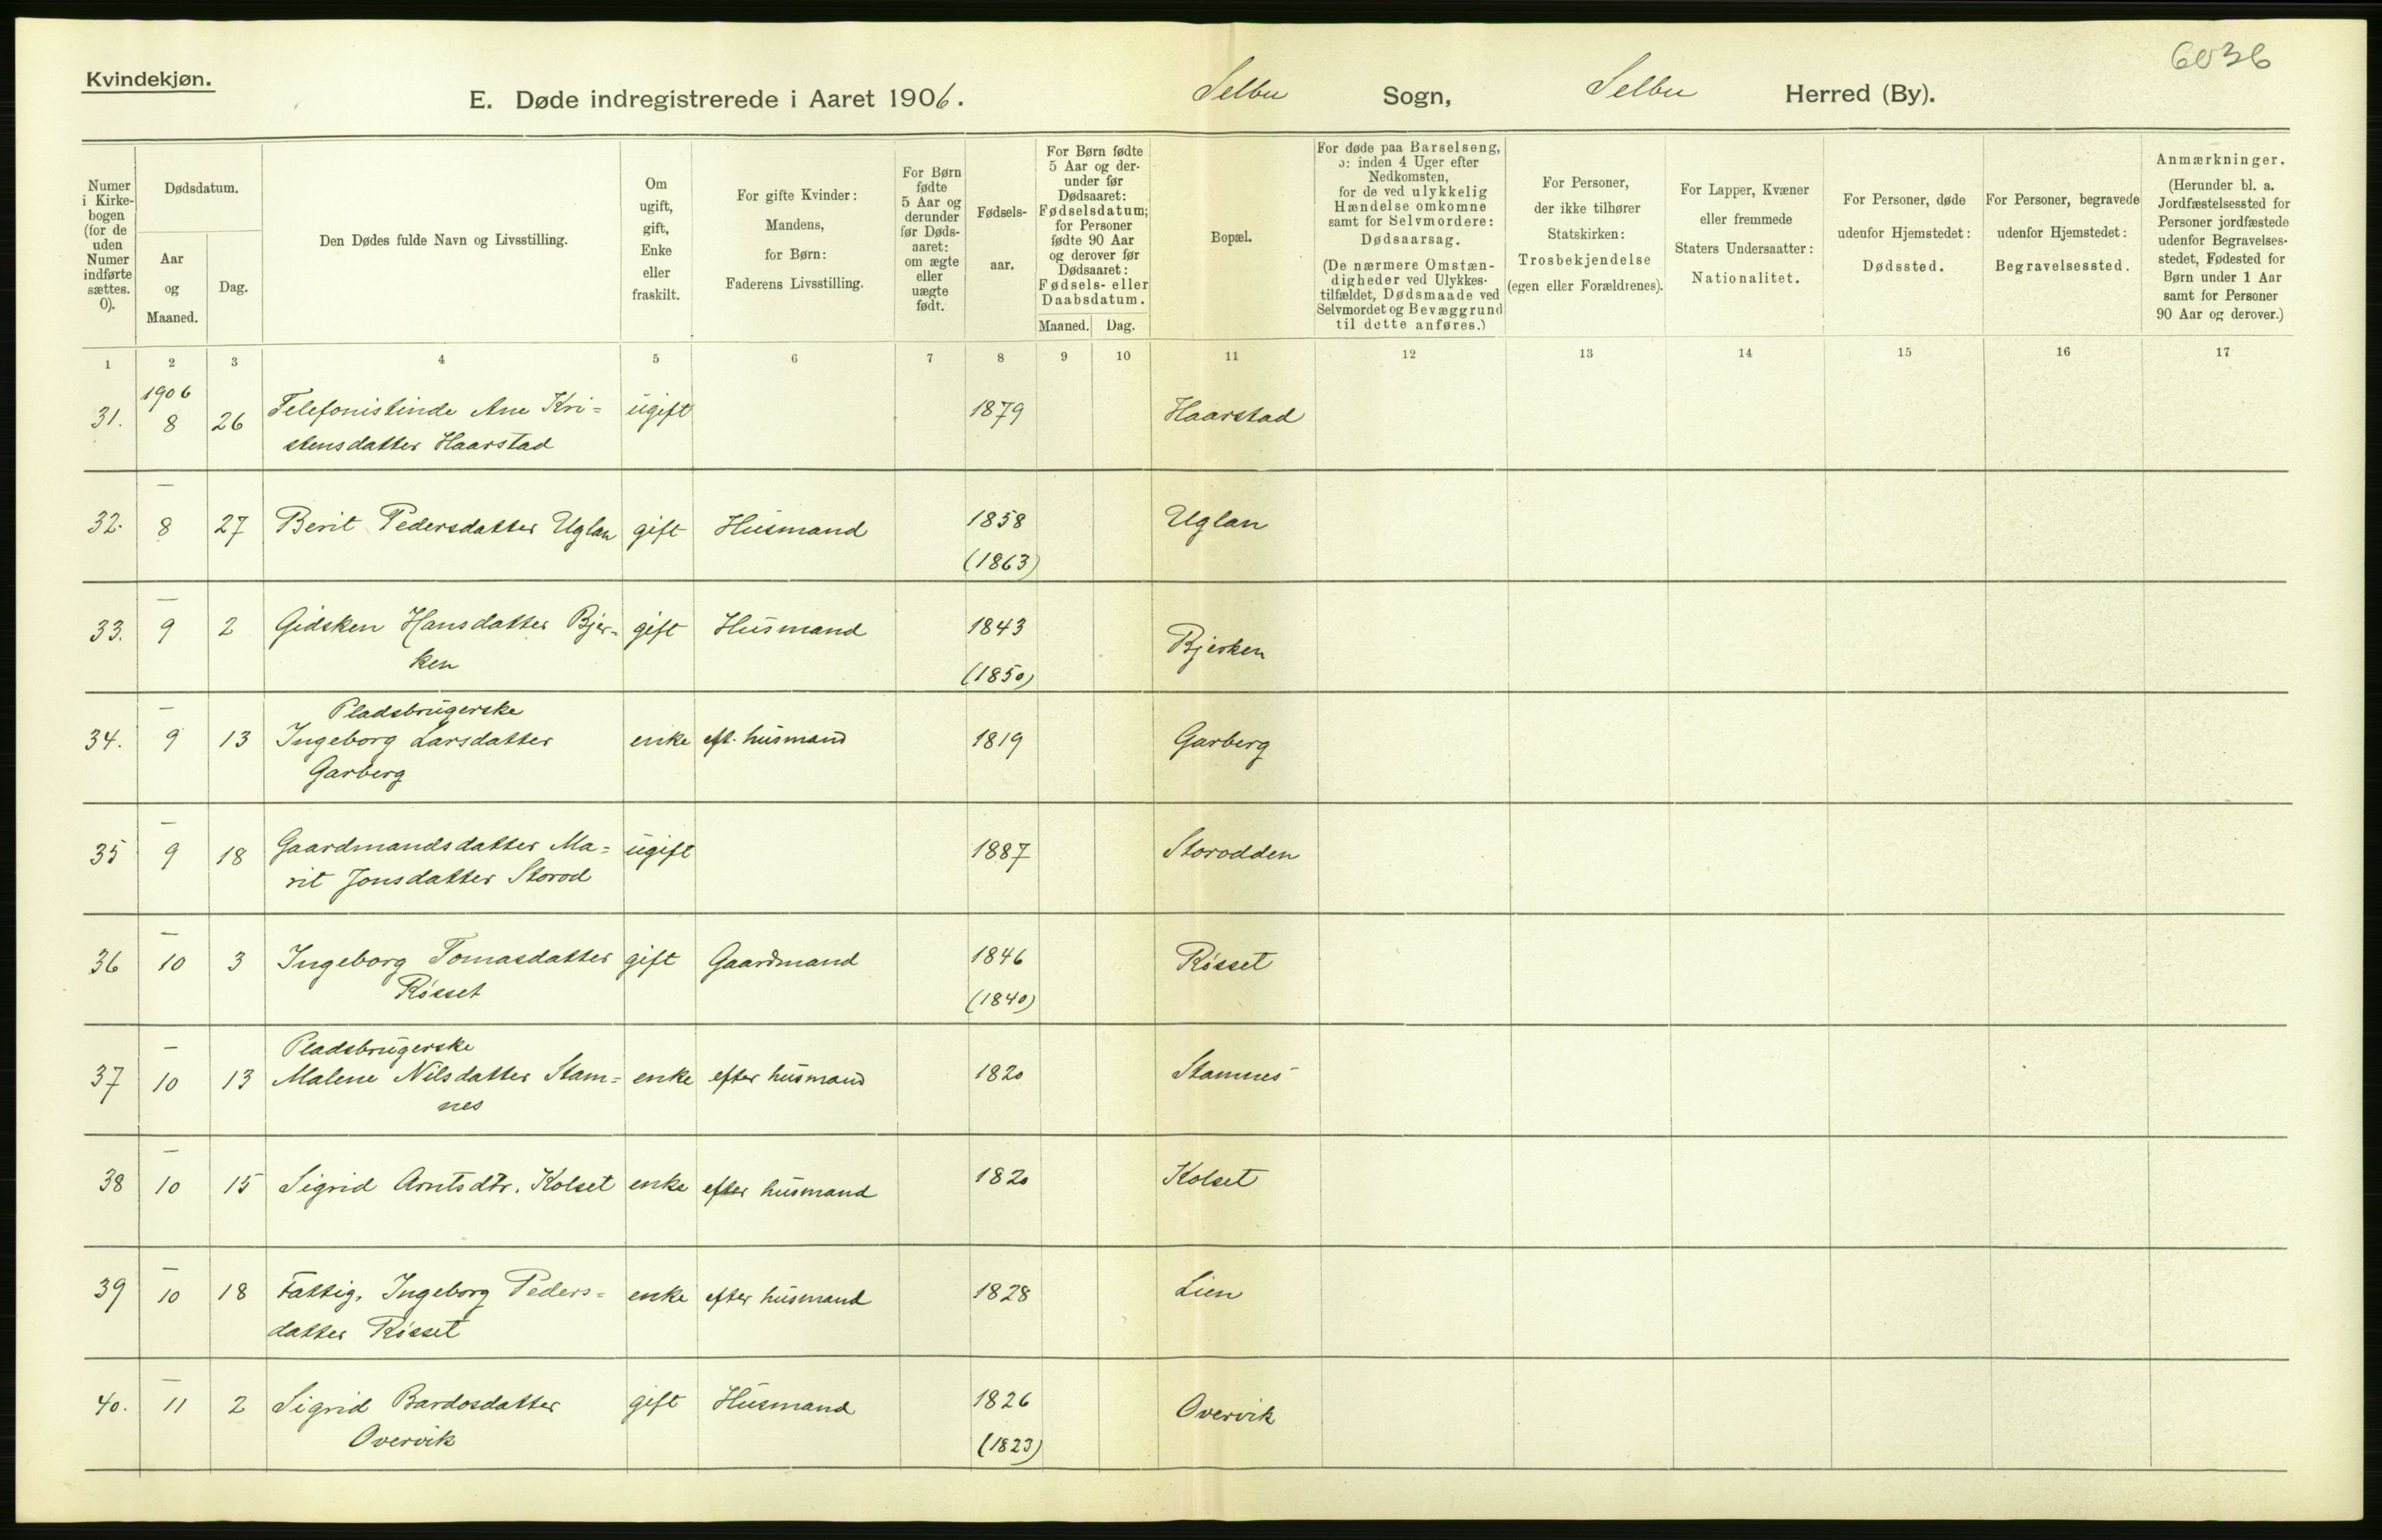 6036
Kvindekjøn.
E. Døde indregistrerede i Aaret 1906.
Selbu Sogn, Selbu Herred (By).
Numer
i Kirke-
bogen
(for de
uden
Numer
indførte
sættes.
0).
Dødsdatum.
Aar
og
Maaned.
Dag.
Den Dødes fulde Navn og Livsstilling.
Om
ugift,
gift,
Enke
eller
fraskilt.
For gifte Kvinder:
Mandens,
for Børn:
Faderens Livsstilling.
For Børn
fødte
5 Aar og
derunder
før Døds-
aaret:
om ægte
eller
uægte
født.
Fødsels-
aar.
For Børn fødte
5 Aar og der-
under før
Dødsaaret:
Fødselsdatum;
for Personer
fødte 90 Aar
og derover før
Dødsaaret:
Fødsels- eller
Daabsdatum.
Maaned. Dag.
Bopæl.
For døde paa Barselseng,
ɔ: inden 4 Uger efter
Nedkomsten,
for de ved ulykkelig
Hændelse omkomne
samt for Selvmordere:
Dødsaarsag.
(De nærmere Omstæn-
digheder ved Ulykkes-
tilfældet, Dødsmaade ved
Selvmordet og Bevæggrund
til dette anføres.)
For Personer,
der ikke tilhører
Statskirken:
Trosbekjendelse
(egen eller Forældrenes).
For Lapper, Kvæner
eller fremmede
Staters Undersaatter:
Nationalitet.
For Personer, døde
udenfor Hjemstedet:
Dødssted.
For Personer, begravede
udenfor Hjemstedet:
Begravelsessted.
Anmærkninger.
(Herunder bl. a.
Jordfæstelsessted for
Personer jordfæstede
udenfor Begravelses-
stedet, Fødested for
Børn under 1 Aar
samt for Personer
90 Aar og derover.)
1 2 3 4 5 6 7 8 9 10 11 12 13 14 15 16 17
1906
31. 8 26 Telefonistinde Ane Kri= ugift 1879 Haarstad
stensdatter Haarstad
—
32. 8 27 Berit Pedersdatter Uglan gift Husmand 1858 Uglan
(1863)
—
33. 9 2 Gidsken Hansdatter Bjer= gift Husmand 1843 Bjerken
ken
(1850)
—
Pladsbrugerske
34. 9 13 Ingeborg Larsdatter enke eft. husmand 1819 Garberg
Garberg
—
35 9 18 Gaardmandsdatter Ma= ugift 1887 Storodden
rit Jonsdatter Storod
—
36 10 3 Ingeborg Tomasdatter gift Gaardmand 1846 Røsset
Røsset (1840)
—
Pladsbrugerske
37 10 13 Malene Nilsdatter Stam= enke efter husmand 1820 Stamnes
nes
—
38 10 15 Sigrid Arntsdtr. Kolset enke efter husmand 1820 Kolset
—
39 10 18 Fattig, Ingeborg Peders= enke efter husmand 1828 Lien
datter Røsset
—
40. 11 2 Sigrid Bardosdatter gift Husmand 1826 Overvik
Overvik (1823)